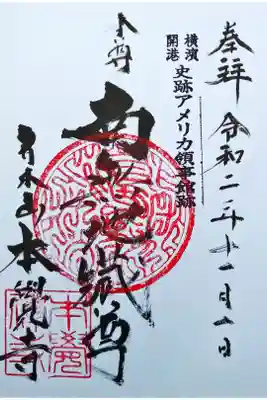 奉拝 令和二年十一月一日
横濱
開港
史跡アメリカ領事館跡
本尊
南無地蔵尊
青木山本覺寺
本覺寺